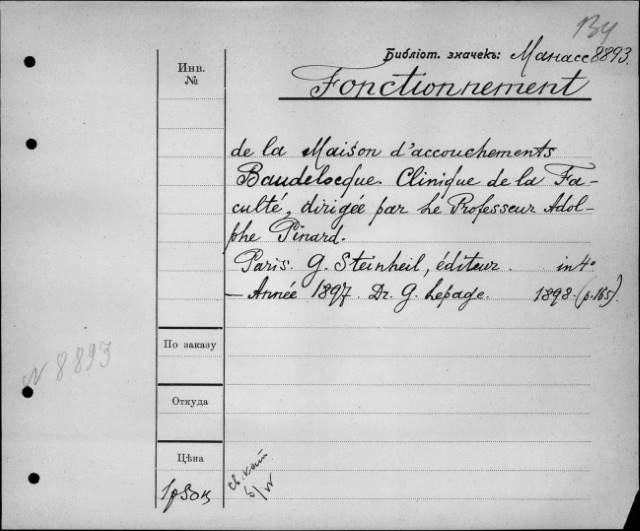 Библіот. значекъ: Манасс 8893.
Инв.
№
Fonctionnement
de la Maison d'accouchements
Baudelocque. Clinique de la Fa-
culté, dirigée par Le Professeur Adol-
phe Pinard.
Paris. G. Steinheil, éditeur. in 4°
— Année 1897. Dr. G. Lepage. 1898 (p. 165).
По заказу
N 8893
Откуда
Цѣна